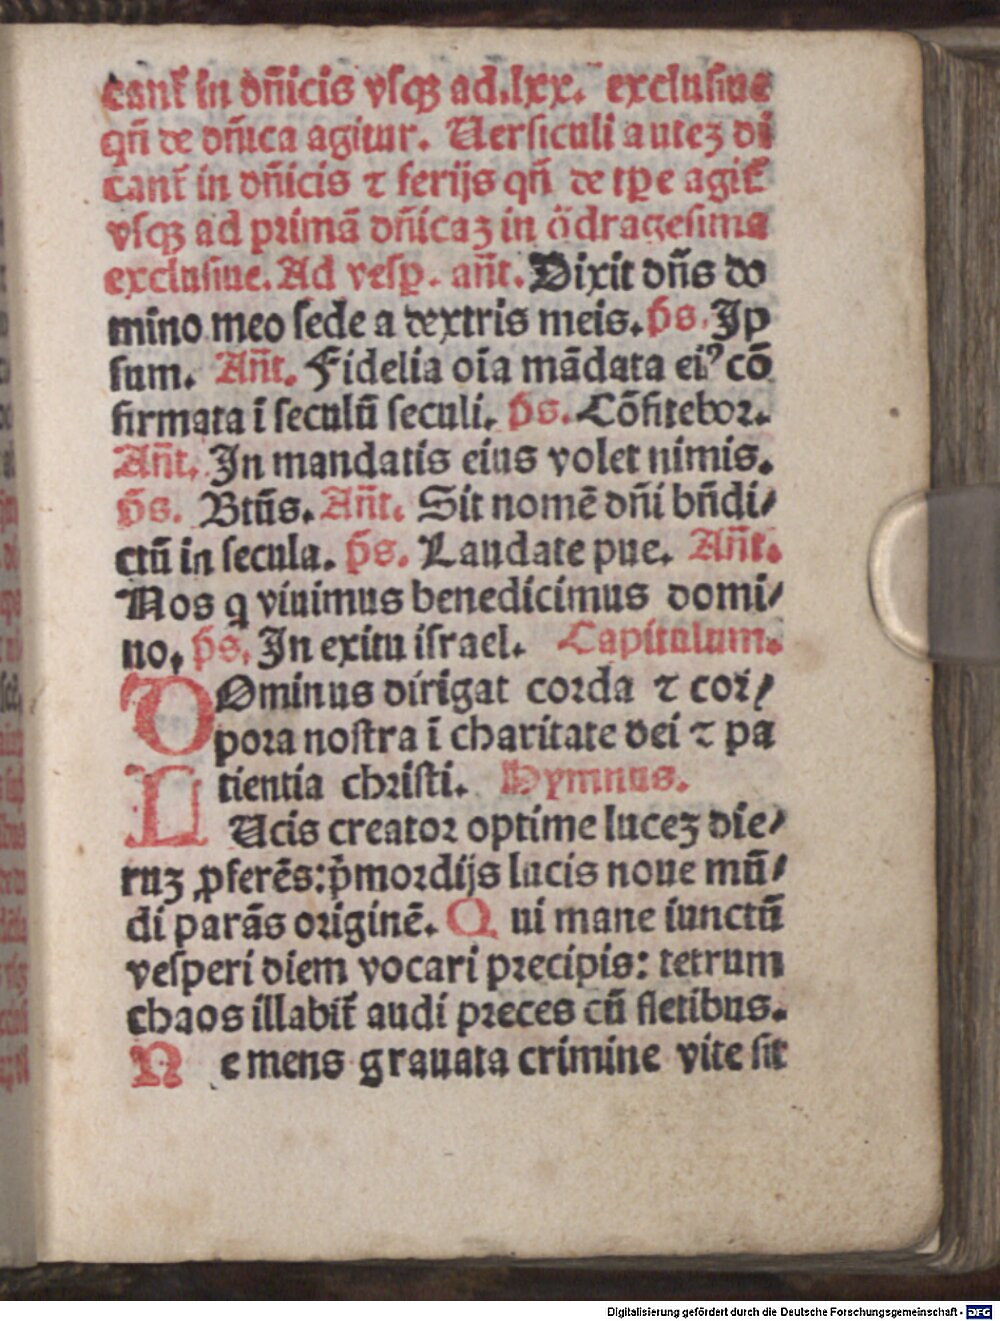 cant᷑ in dn̄icis vsqꝫ ad.lxx. exclusiue
qn̄ de dn̄ica agitur. Uersiculi auteʒ di
cant᷑ in dn̄icis ⁊ ferijs qn̄ de tp̄e agit᷑
vsqꝫ ad primā dn̄icaʒ in q̈dragesima
exclusiue. Ad vesꝑ. an̄t. Dixit dn̄s do
mino meo sede a dextris meis. p̄s. Ip
sum. An̄t. Fidelia oīa mādata ei⁹ cō
firmata ī seculū seculi. p̄s. Cōfitebor.
An̄t. In mandatis eius volet nimis.
p̄s. Btūs. An̄t. Sit nomē dn̄i bn̄di/
ctū in secula. p̄s. Laudate pue. An̄t.
Nos q viuimus benedicimus domi/
no. p̄s. In exitu israel. Capitulum.
DOminus dirigat corda ⁊ cor/
pora nostra ī charitate dei ⁊ pa
tientia christi. Hymnus.
LUcis creator optime luceʒ die/
ruʒ ꝓferēs: p̄mordijs lucis noue mū/
di parās originē. Qui mane iunctū
vesperi diem vocari precipis: tetrum
chaos illabit᷑ audi preces cū fletibus.
Ne mens grauata crimine vite sit
Digitalisierung gefördert durch die Deutsche Forschungsgemeinschaft - DFG